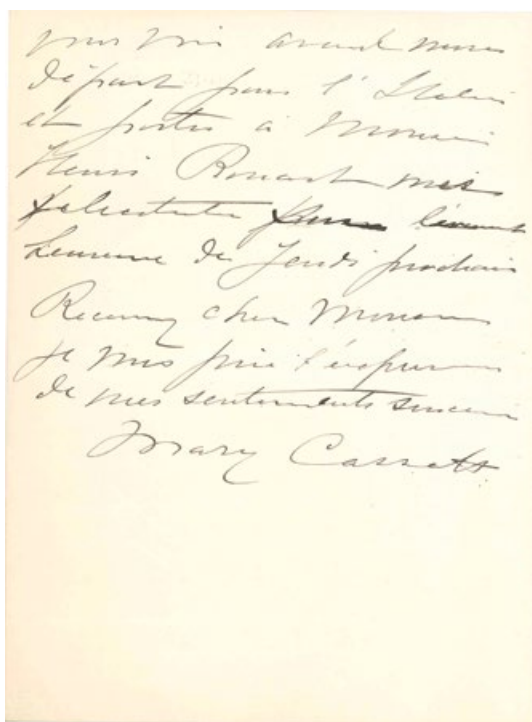 vous voir avant mon
départ pour l'Italie
et porter à Monsieur
Henri Rouart mes
félicitations pour l'évènement
heureux de Jeudi prochain
Recevez cher Monsieur
je vous prie l'expression
de mes sentiments sincères
Mary Cassatt